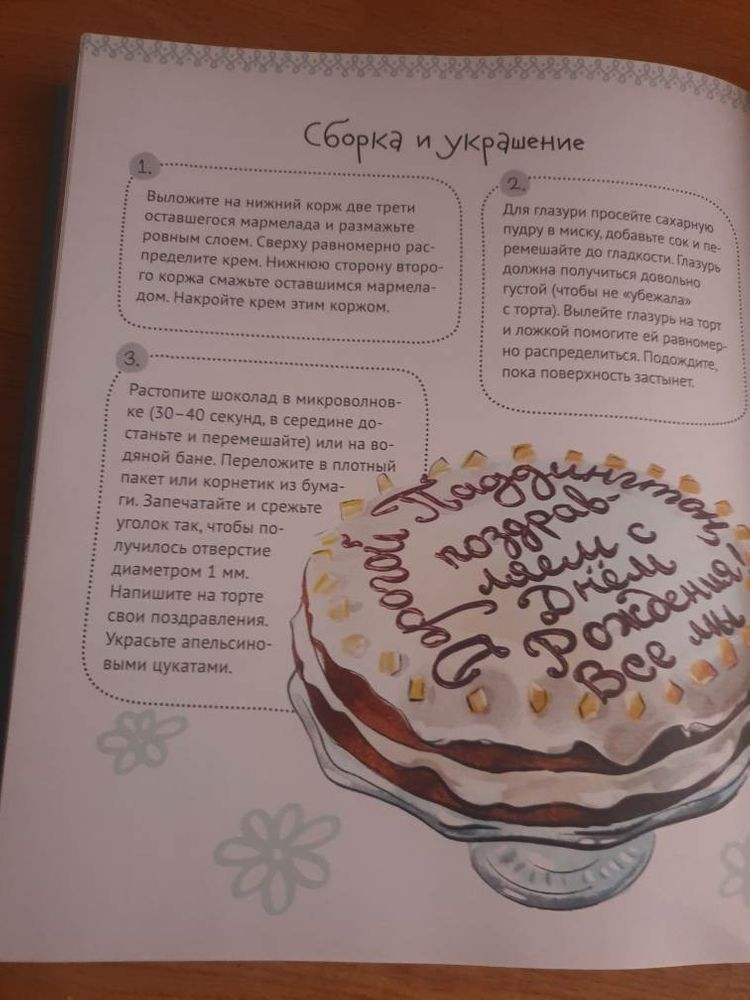 Сборка и украшение
1.
Выложите на нижний корж две трети
оставшегося мармелада и размажьте
ровным слоем. Сверху равномерно рас-
пределите крем. Нижнюю сторону второ-
го коржа смажьте оставшимся мармела-
дом. Накройте крем этим коржом.
2.
Для глазури просейте сахарную
пудру в миску, добавьте сок и пе-
ремешайте до гладкости. Глазурь
должна получиться довольно
густой (чтобы не «убежала»
с торта). Вылейте глазурь на торт
и ложкой помогите ей равномер-
но распределиться. Подождите,
пока поверхность застынет.
3.
Растопите шоколад в микроволнов-
ке (30–40 секунд, в середине до-
станьте и перемешайте) или на во-
дяной бане. Переложите в плотный
пакет или корнетик из бума-
ги. Запечатайте и срежьте
уголок так, чтобы по-
лучилось отверстие
диаметром 1 мм.
Напишите на торте
свои поздравления.
Украсьте апельсино-
выми цукатами.
Дорогой Паддингтон,
поздрав-
ляем с
Днём
Рождения!
Все мы